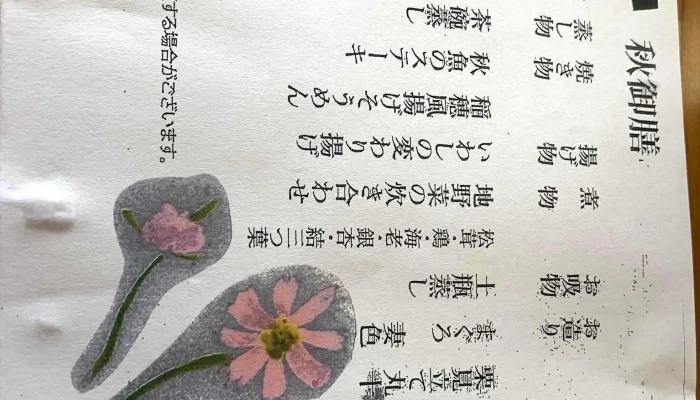 秋御膳
栗見立て丸十
お造り まぐろ 妻色
お吸物 土瓶蒸し
松茸・鶏・海老・銀杏・結三つ葉
煮物 地野菜の炊き合わせ
揚げ物 いわしの変わり揚げ
稲穂風揚げそうめん
焼き物 秋魚のステーキ
蒸し物 茶碗蒸し
する場合がございます。